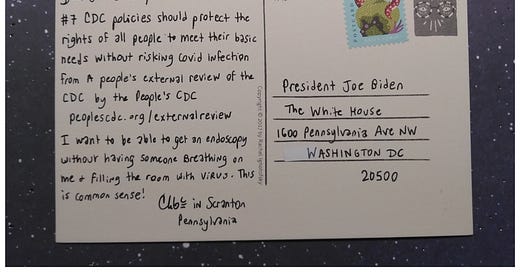 #7 CDC policies should protect the
rights of all people to meet their basic
needs without risking covid infection
from A people's external review of the
CDC by the People's CDC
peoplescdc.org/externalreview
I want to be able to get an endoscopy
without having someone Breathing on
me & filling the room with virus. This
is common sense!
in Scranton
Pennsylvania
POSTCARD
President Joe Biden
The White House
1600 Pennsylvania Ave NW
WASHINGTON DC
20500